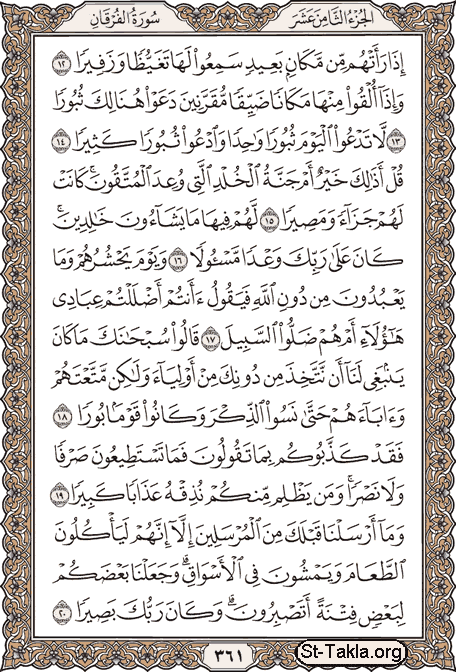 الجُزْءُ الثَّامِنَ عَشَرَ
سُورَةُ الفُرْقَانِ
إِذَا رَأَتْهُم مِّن مَّكَانٍ بَعِيدٍ سَمِعُوا۟ لَهَا تَغَيُّظًا وَزَفِيرًا ١٢
وَإِذَآ أُلْقُوا۟ مِنْهَا مَكَانًا ضَيِّقًا مُّقَرَّنِينَ دَعَوْا۟ هُنَالِكَ ثُبُورًا
١٣ لَّا تَدْعُوا۟ ٱلْيَوْمَ ثُبُورًا وَٰحِدًا وَٱدْعُوا۟ ثُبُورًا كَثِيرًا ١٤
قُلْ أَذَٰلِكَ خَيْرٌ أَمْ جَنَّةُ ٱلْخُلْدِ ٱلَّتِى وُعِدَ ٱلْمُتَّقُونَ ۚ كَانَتْ
لَهُمْ جَزَآءً وَمَصِيرًا ١٥ لَّهُمْ فِيهَا مَا يَشَآءُونَ خَٰلِدِينَ ۚ
كَانَ عَلَىٰ رَبِّكَ وَعْدًا مَّسْـُٔولًا ١٦ وَيَوْمَ يَحْشُرُهُمْ وَمَا
يَعْبُدُونَ مِن دُونِ ٱللَّهِ فَيَقُولُ ءَأَنتُمْ أَضْلَلْتُمْ عِبَادِى
هَٰٓؤُلَآءِ أَمْ هُمْ ضَلُّوا۟ ٱلسَّبِيلَ ١٧ قَالُوا۟ سُبْحَٰنَكَ مَا كَانَ
يَنۢبَغِى لَنَآ أَن نَّتَّخِذَ مِن دُونِكَ مِنْ أَوْلِيَآءَ وَلَٰكِن مَّتَّعْتَهُمْ
وَءَابَآءَهُمْ حَتَّىٰ نَسُوا۟ ٱلذِّكْرَ وَكَانُوا۟ قَوْمًۢا بُورًا ١٨
فَقَدْ كَذَّبُوكُم بِمَا تَقُولُونَ فَمَا تَسْتَطِيعُونَ صَرْفًا
وَلَا نَصْرًا ۚ وَمَن يَظْلِم مِّنكُمْ نُذِقْهُ عَذَابًا كَبِيرًا ١٩
وَمَآ أَرْسَلْنَا قَبْلَكَ مِنَ ٱلْمُرْسَلِينَ إِلَّآ إِنَّهُمْ لَيَأْكُلُونَ
ٱلطَّعَامَ وَيَمْشُونَ فِى ٱلْأَسْوَاقِ ۗ وَجَعَلْنَا بَعْضَكُمْ
لِبَعْضٍ فِتْنَةً أَتَصْبِرُونَ ۗ وَكَانَ رَبُّكَ بَصِيرًا ٢٠
٣٦١
St-Takla.org